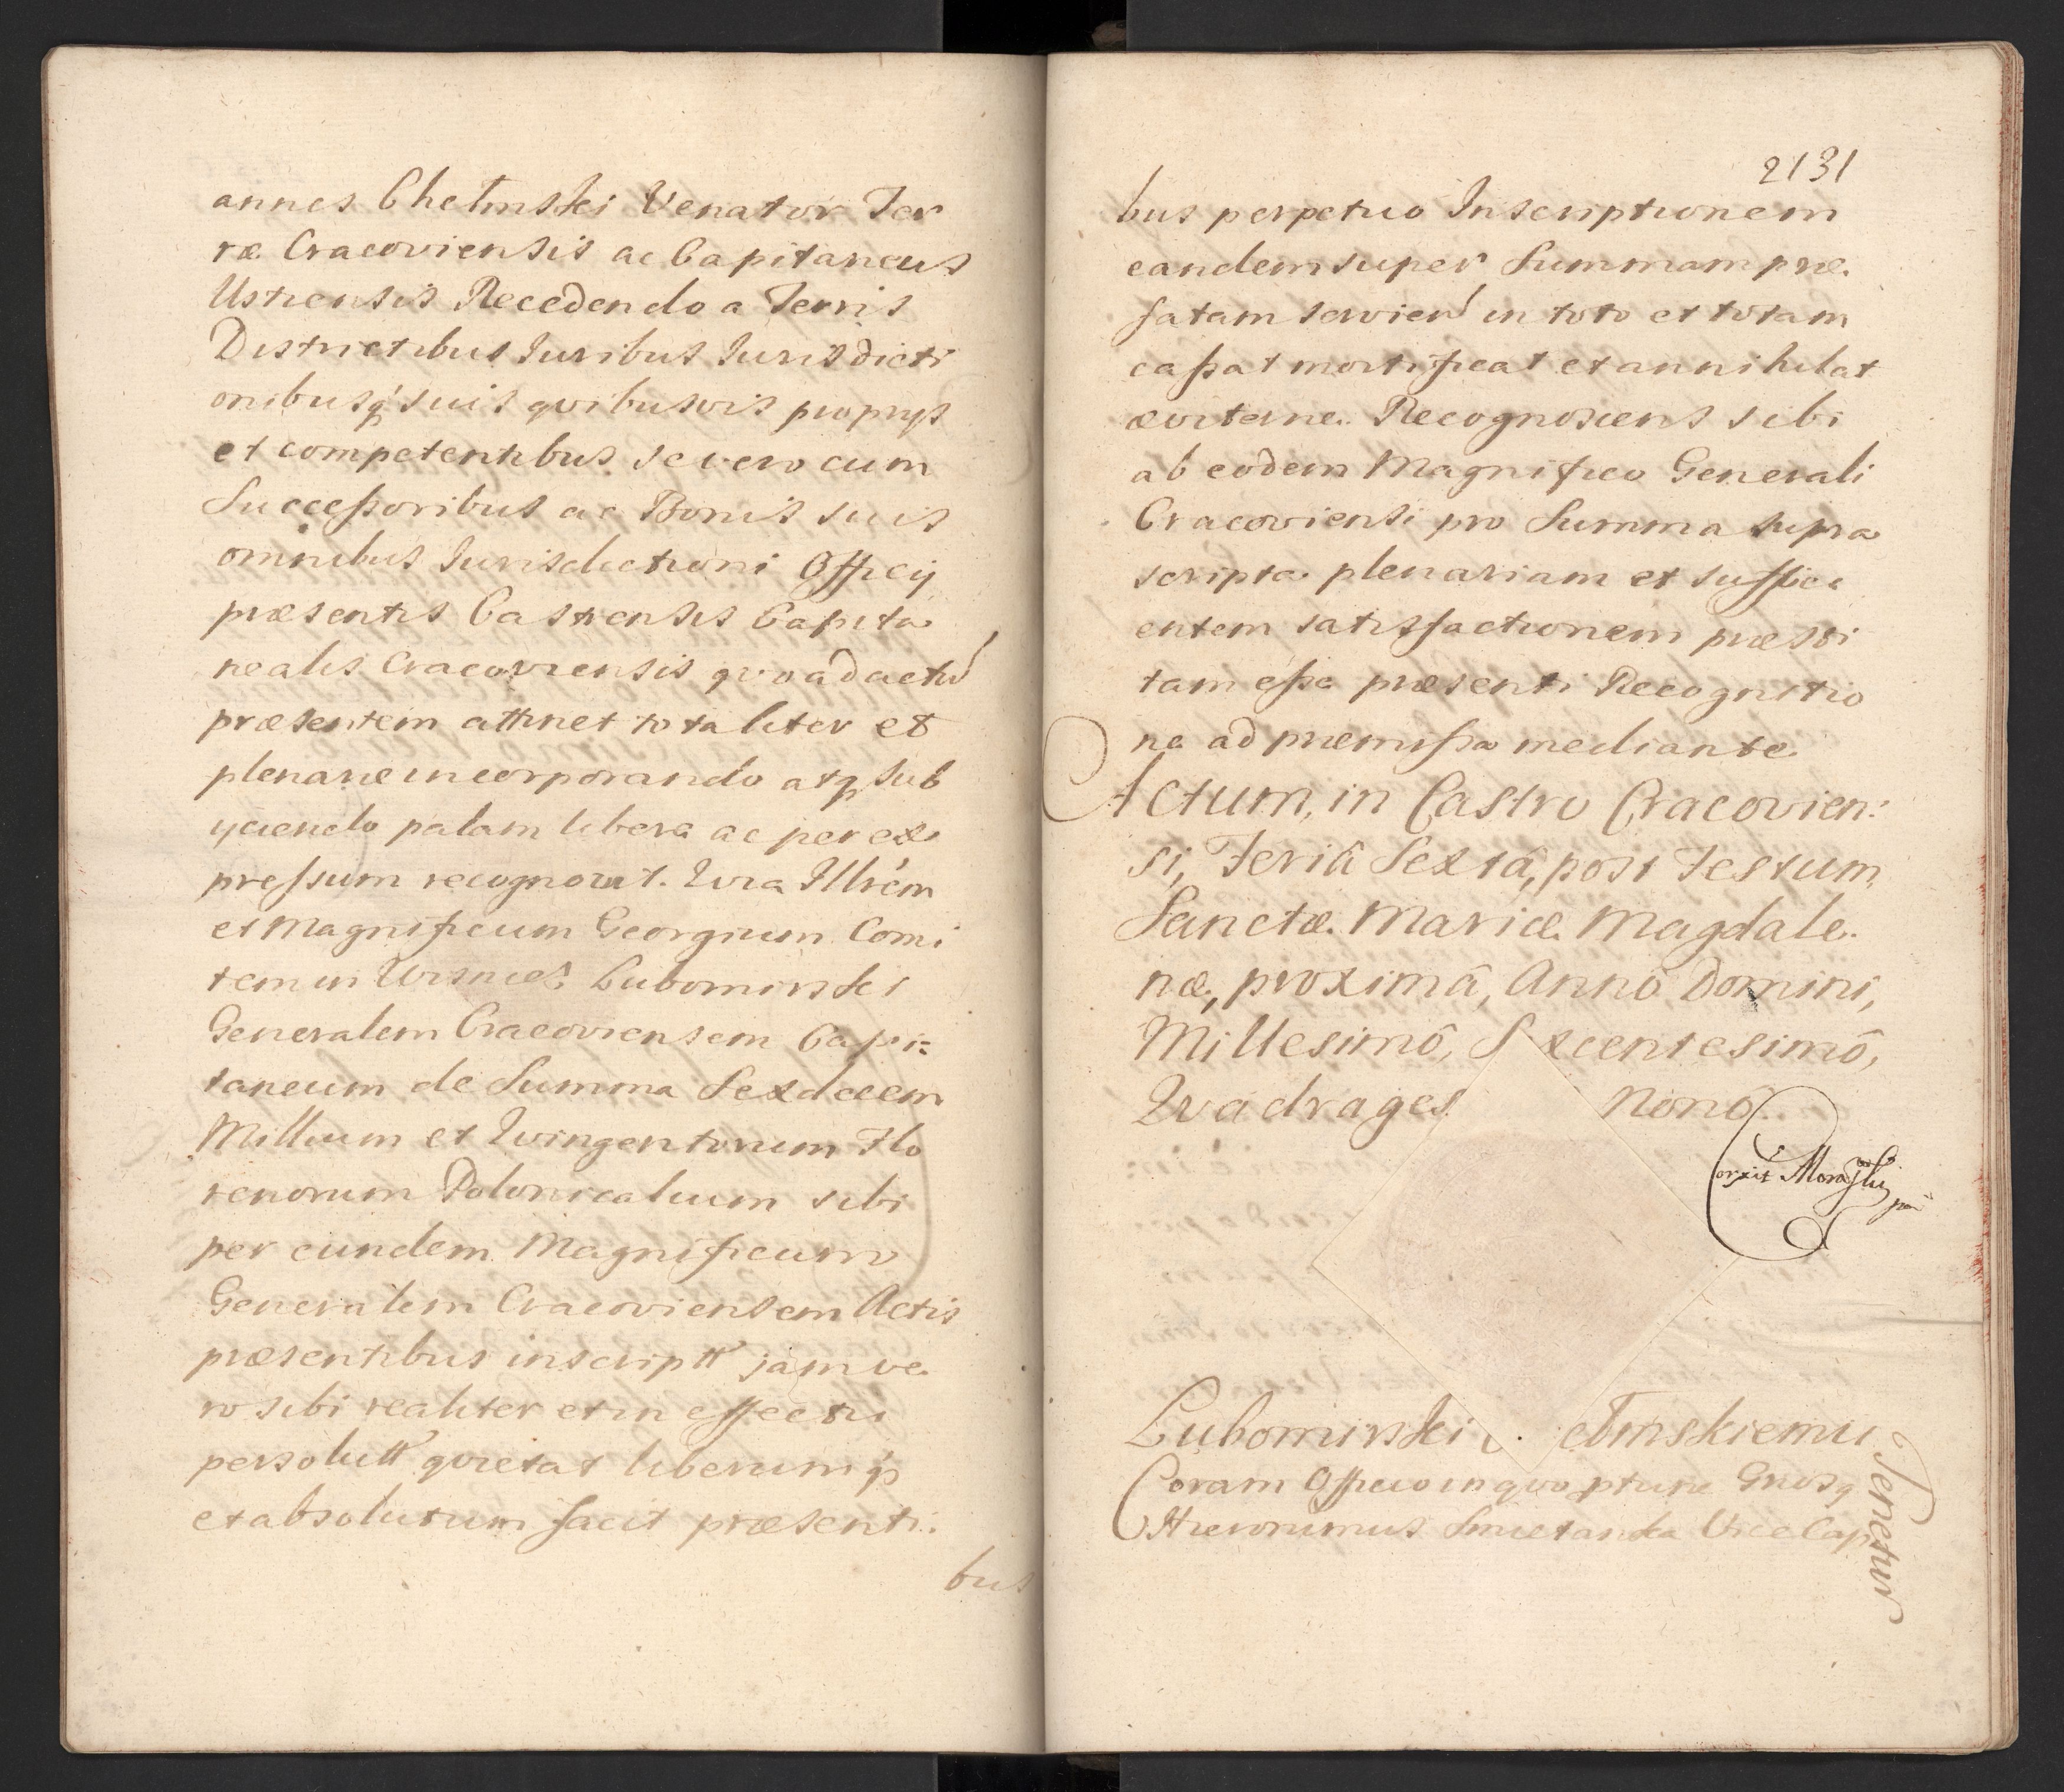 annes Chełmski Venator Ter
ræ Cracoviensis ac Capitaneus
Ustiensis Recedendo a Terris
Districtibus Iuribus Iurisdicti
onibusq suis qvibusvis proprijs
et competentibus. se vero cum
Successoribus ac Bonis suis
omnibus Iurisdictioni Officij
præsentis Castrensis Capita
nealis Cracoviensis qvoad actū
præsentem attinet totaliter et
plenarie incorporando atq sub
ijciendo palam libere ac per ex
pressum recognovit. Qvia Illrem
et Magnificum Georgium Comi
tem in Wisnicz Lubomirski
Generalem Cracoviensem Capi=
taneum de Summa Sexdecem
Millium et Qvingentorum Flo
renorum Polonicalium sibi
per eundem Magnificum
Generalem Cracoviensem Actis
præsentibus inscriptt jam ve
ro sibi realiter et in effectu
persolutt qvietat liberumq
et absolutum facit præsenti.
bus
2131
bus perpetuo Inscriptionem
eandem super Summam præ
fatam servien in toto et totam
cassat mortificat et annihilat
æviterne. Recognoscens sibi
ab eodem Magnifico Generali
Cracoviensi pro Summa supra
scripta plenariam et suffici
entem satisfactionem præsti
tam esse præsenti Recognitio
ne ad præmissa mediante
Actum, in Castro Cracovien:
si, Feriâ Sextâ, post Festum
Sanctæ Mariæ Magdale.
næ, proximâ, Annô Domini,
Millesimô, S xcentesimô,
Qvadrages Nonô.
Corxit Morayski
Lubomirski etmskiemu
Coram Officio in qvo pture Gnosq
Hieronimus Smietanka Vice Cap
Tenetur